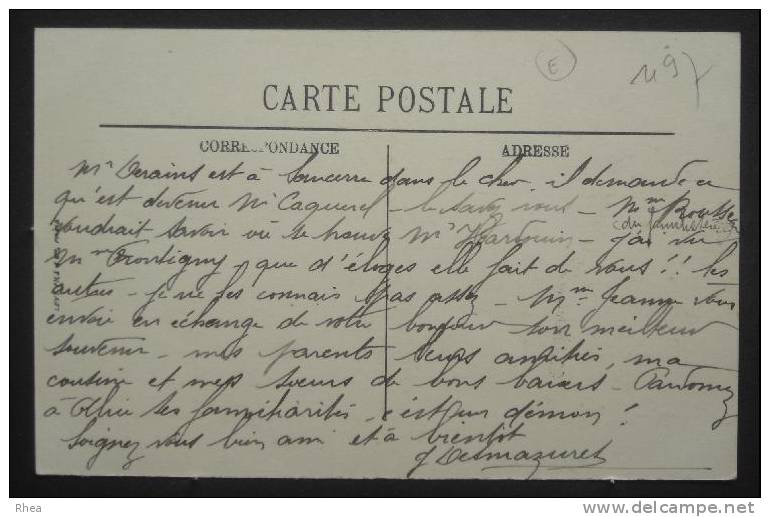 E
1197
CARTE POSTALE
CORRESPONDANCE
ADRESSE
Mr Derains est à Sancerre dans le cher. il demande ce
qu'est devenu Mr Caquerel - le savez vous - Mme Rousse
(du ministère)
voudrait savoir où se trouve Mr Hardouin - j'ai vu
Mme Frontigny, que d'éloges elle fait de vous!! les
autres - je ne les connais pas assez - Mme Jeanne vous
envoie en échange de votre bonjour son meilleur
souvenir - mes parents leurs amitiés, ma
cousine et mes soeurs de bons baisers - Pardonnez
à Ollie ses familiarités, c'est un démon!
Soignez vous bien ami et à bientôt
J Desmazures
Rhea
delcampe.net